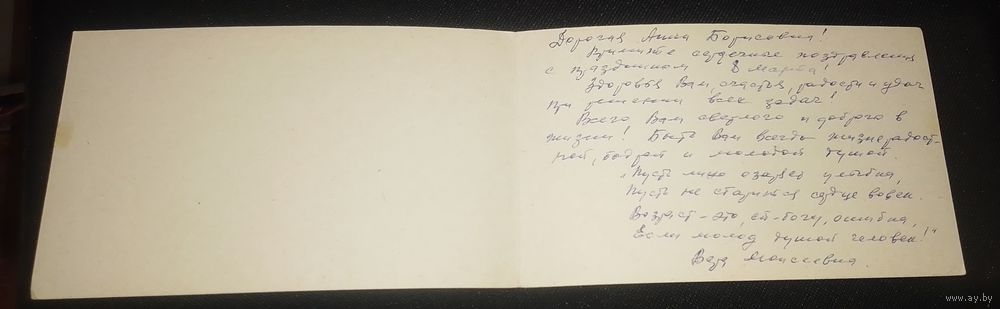 Дорогая Анна Борисовна!
Примите сердечные поздравления
с праздником 8 марта!
Здоровья Вам, счастья, радости и удач
при решении всех задач!
Всего Вам светлого и доброго в
жизни! Быть Вам всегда жизнерадост-
ной, бодрой и молодой душой.
"Пусть лицо озаряет улыбка,
Пусть не старится сердце вовек.
Возраст - это, ей-богу, ошибка,
Если молод душой человек!"
Моисеевна.
www.ay.by